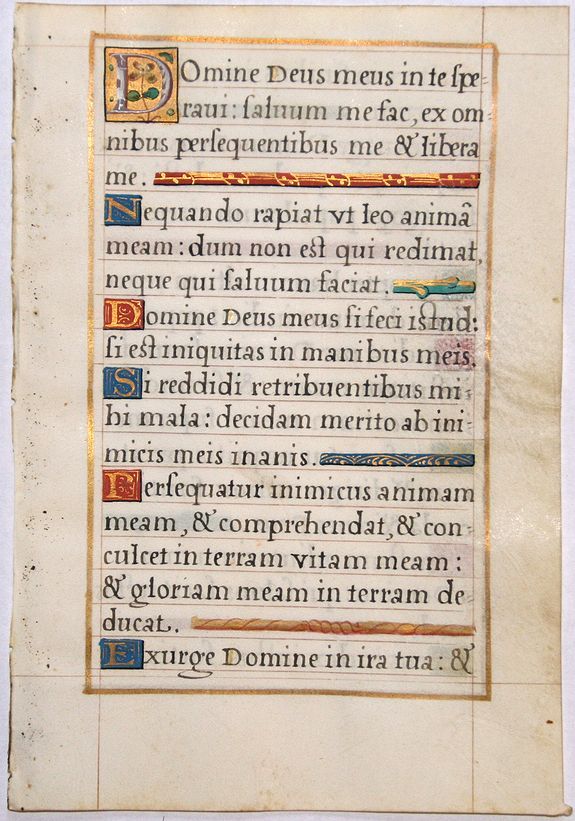 Domine Deus meus in te ſpe-
raui: ſaluum me fac, ex om-
nibus perſequentibus me & libera
me.
Nequando rapiat vt leo animā
meam: dum non eſt qui redimat,
neque qui ſaluum faciat.
Domine Deus meus ſi feci iſtud:
ſi eſt iniquitas in manibus meis.
Si reddidi retribuentibus mi-
hi mala: decidam merito ab ini-
micis meis inanis.
Perſequatur inimicus animam
meam, & comprehendat, & con-
culcet in terram vitam meam:
& gloriam meam in terram de-
ducat.
Exurge Domine in ira tua: &